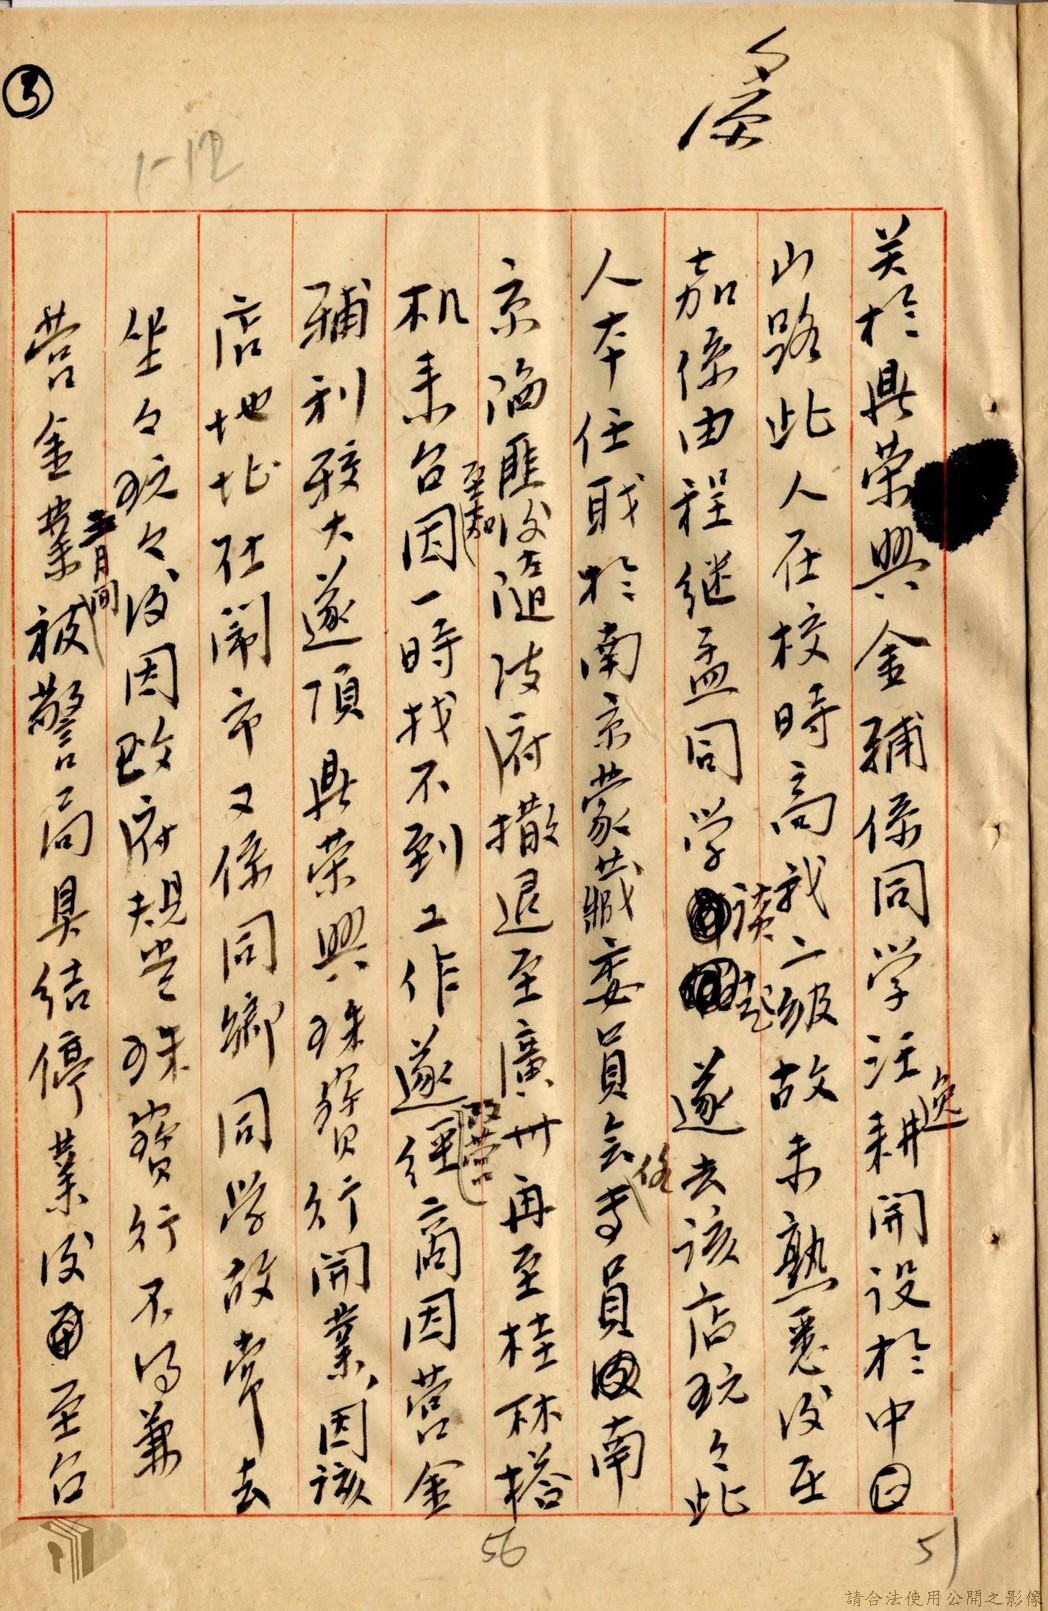 3
1-12
关於鼎荣興金輔係同学汪逸耕開设於中
山路此人在校時高我二级故未熟悉後在
嘉係由程继孟同学谈起遂去该店玩々此
人本任职於南京蒙藏委員会任专員南
京陷匪後随政府撤退至廣州再至桂林搭
机来台至和因一時找不到工作遂经商因营金
辅利较大遂顶鼎荣興珠寳行開業因该
店地址在闹市又係同鄉同学故常去
坐々玩々後因政府規定珠寳行不得兼
营金業五月间被警局具结停業後至台
56
51
請合法使用公開之影像